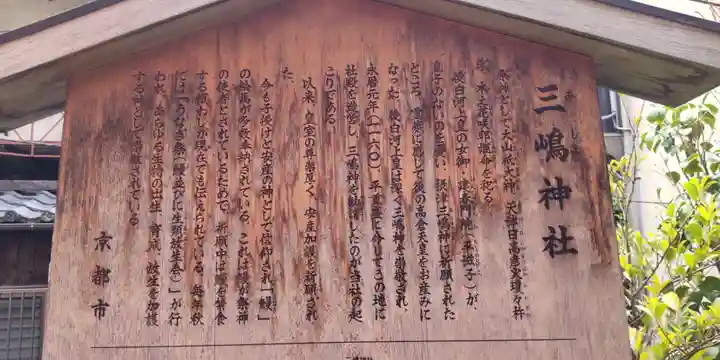 三嶋神社
祭神として大山祇大神、天津日高彦火瓊々杵
尊、木之花咲耶姫命を祀る。
後白河上皇の女御・建春門院(平滋子)が、
息子のないのを憂い、摂津三嶋神に祈願された
ところ、霊夢に感じて後の高倉天皇をお産みに
なった。後白河上皇は深く三嶋神を崇敬され、
永暦元年(一一六〇)、平重盛に命じてこの地に
社殿を造営し、三嶋神を勧請したのが当社の起
こりである。
以来、皇室の尊崇厚く、安産加護を祈願され
た。
今も子授けと安産の神として信仰され「鰻」
の絵馬が多数奉納されている。これは鰻が祭神
の使者とされているためで、祈願中は鰻を禁食
する慣わしが現在でも伝えられている。毎年秋
には「うなぎ祭(鰻並びに生類放生会)」が行
われ、あらゆる生物の出生、育成、放生を加護
する神として尊崇されている。
京都市